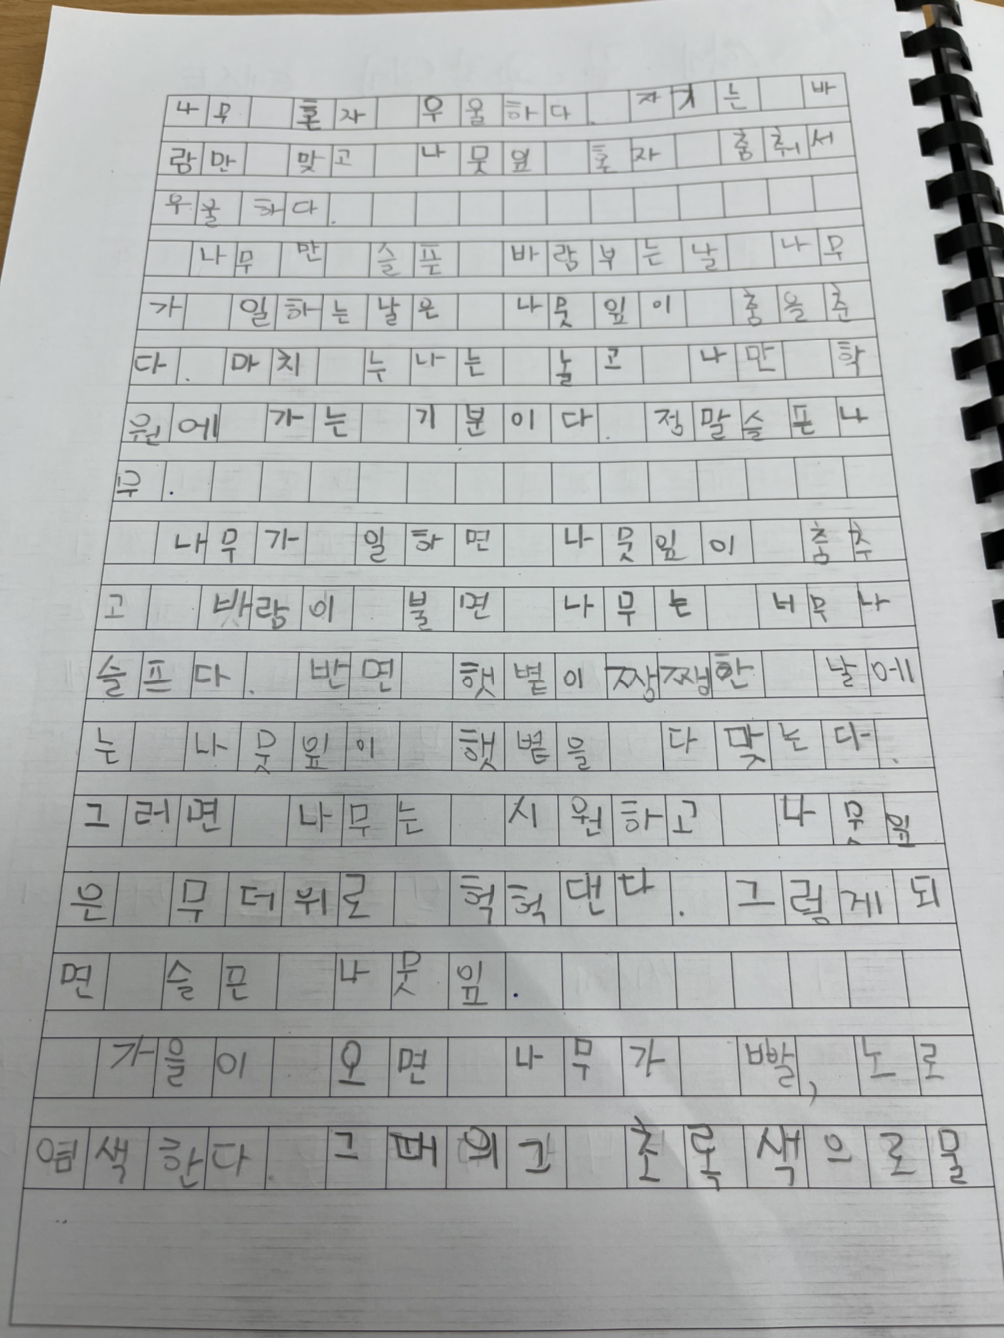 나무 혼자 우울하다. 자기는 바
람만 맞고 나뭇잎 혼자 춤춰서
우울하다.
나무만 슬픈 바람부는날 나무
가 일하는날은 나뭇잎이 춤을춘
다. 마치 누나는 놀고 나만 학
원에 가는 기분이다. 정말슬픈나
무.
나무가 일하면 나뭇잎이 춤추
고 바람이 불면 나무는 너무나
슬프다. 반면 햇볕이짱쨍한 날에
는 나뭇잎이 햇볕을 다 맞는다.
그러면 나무는 시원하고 나뭇잎
은 무더위로 헉헉댄다. 그렇게되
면 슬픈 나뭇잎.
가을이 오면 나무가 빨, 노로
염색한다. 그때의 초록색으로물